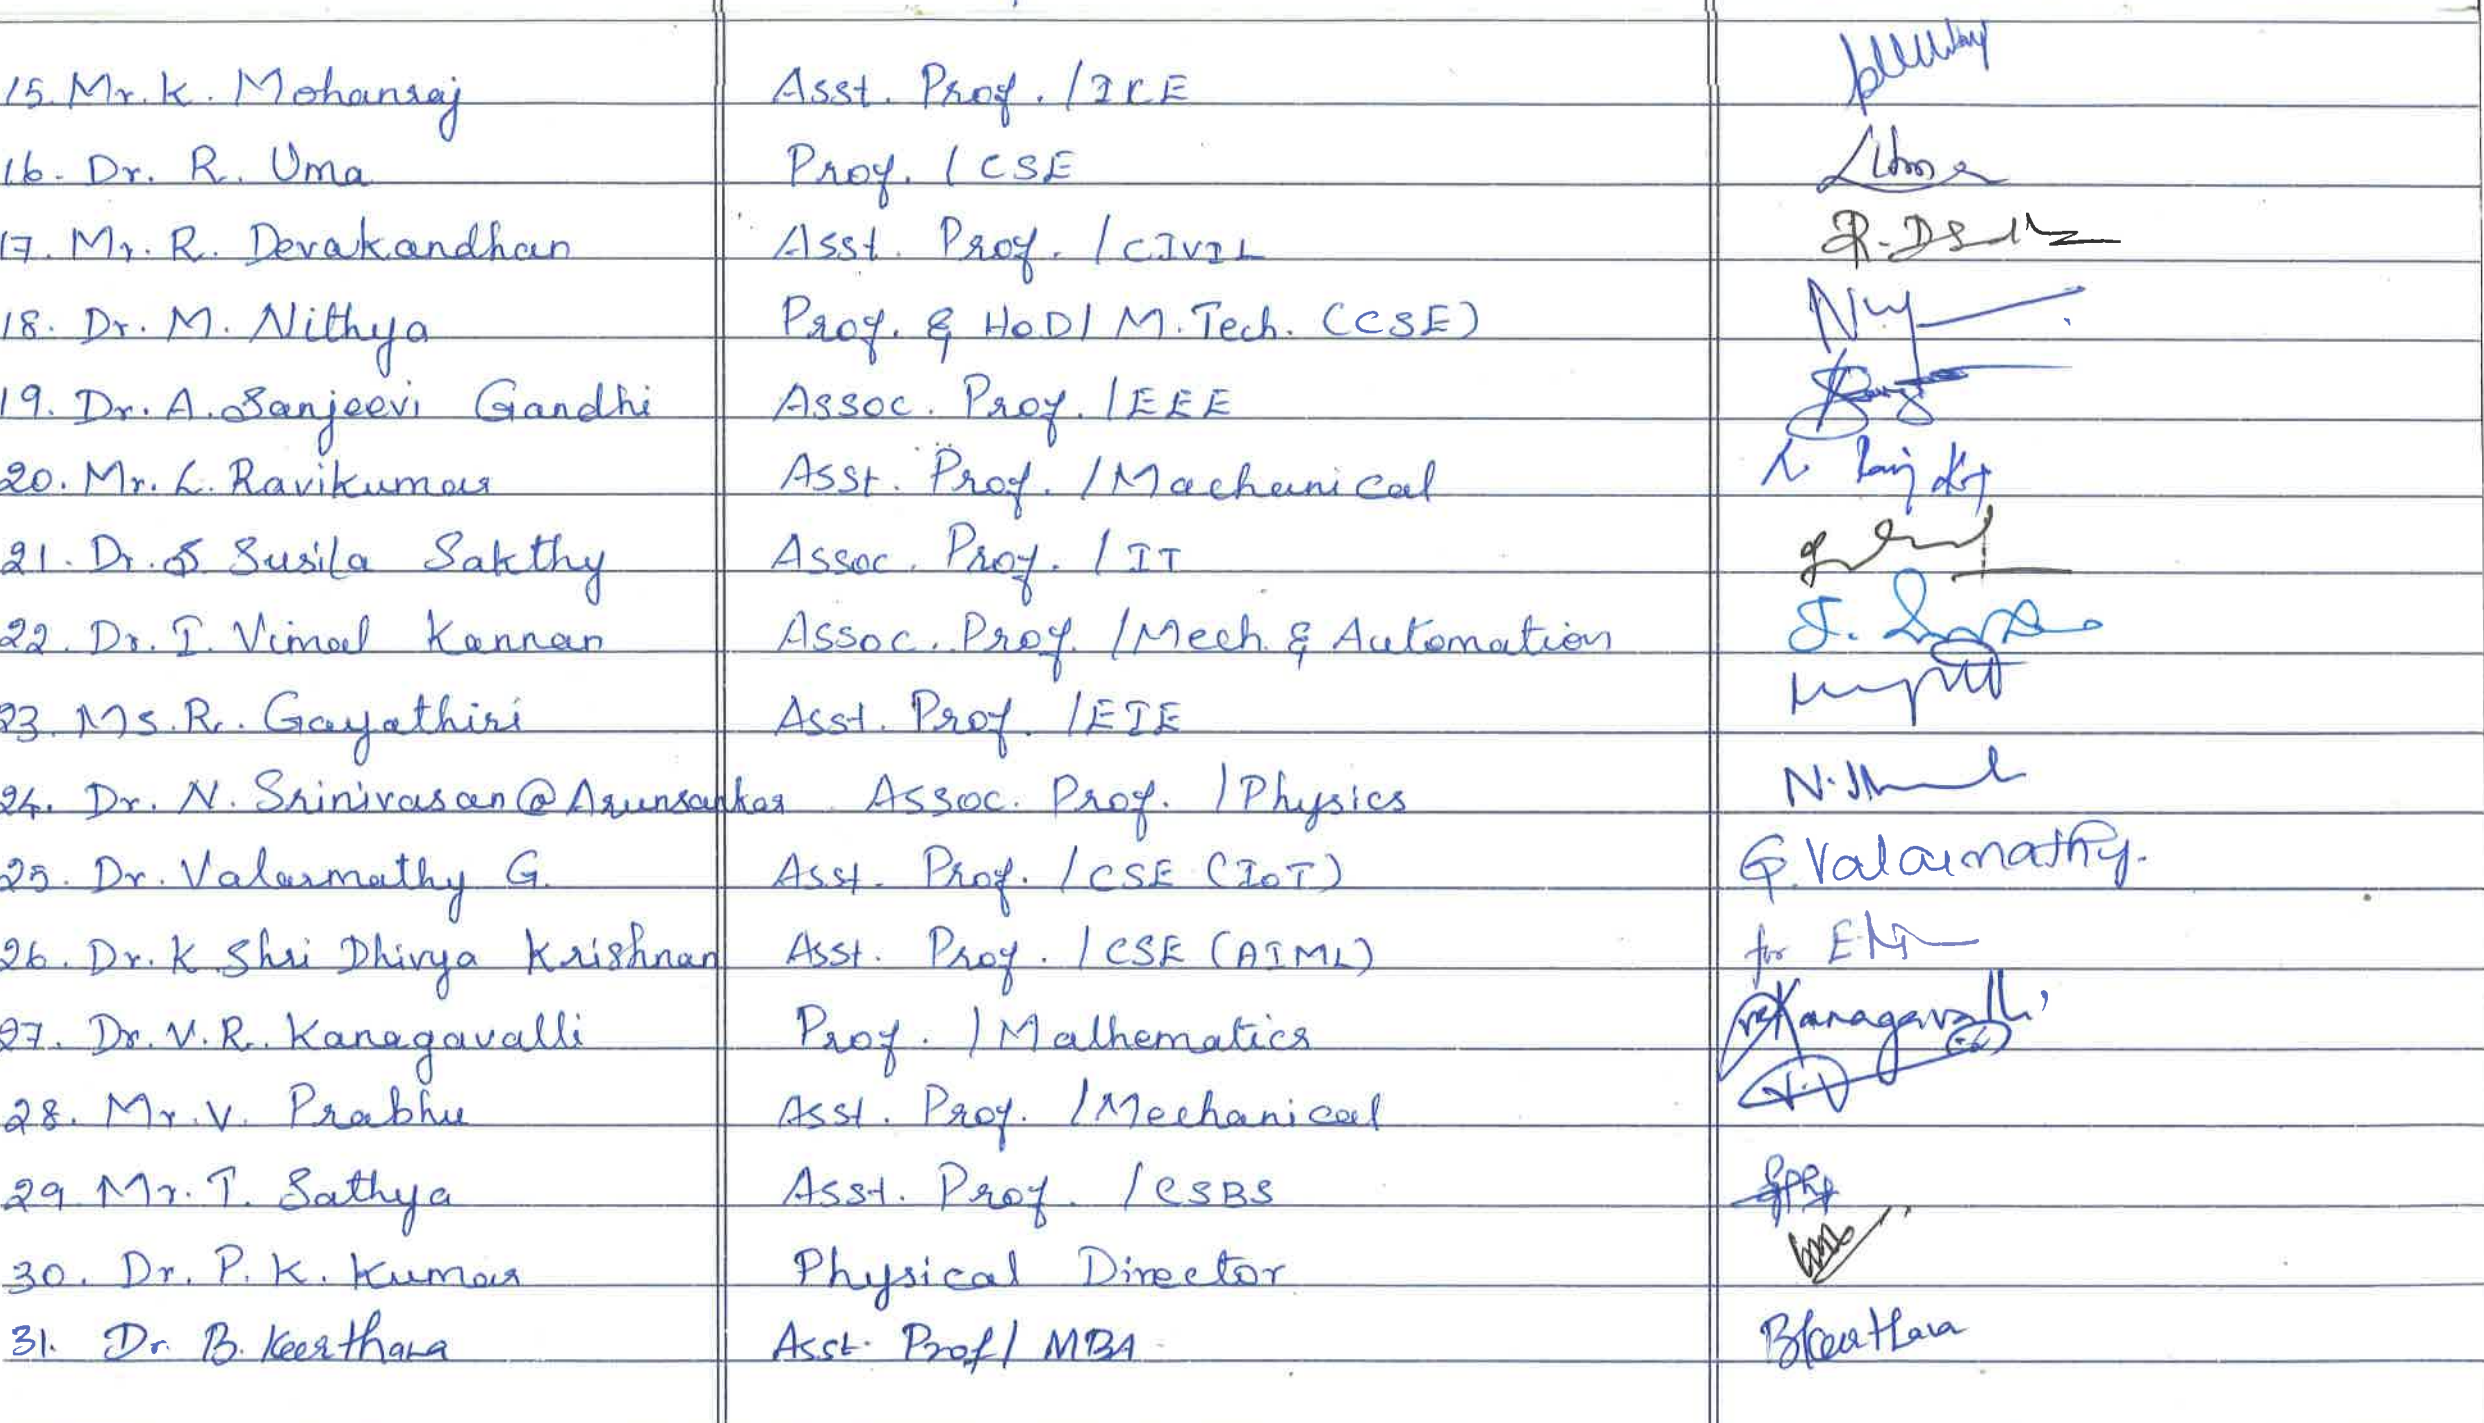 15. Mr. K. Mohanraj Asst. Prof. / ICE
16. Dr. R. Uma Prof. / CSE Uma
17. Mr. R. Devakandhan Asst. Prof. / CIVIL
18. Dr. M. Nithya Prof. & HoD / M.Tech. (CSE)
19. Dr. A. Sanjeevi Gandhi Assoc. Prof. / EEE
20. Mr. L. Ravikumar Asst. Prof. / Machanical
21. Dr. S Susila Sakthy Assoc. Prof. / IT
22. Dr. I. Vimal Kannan Assoc. Prof. / Mech & Automation
23. Ms. R. Gayathiri Asst. Prof. / EIE
24. Dr. N. Srinivasan @ Arunsankar Assoc. Prof. / Physics
25. Dr. Valarmathy G. Asst. Prof. / CSE (IoT) G. Valarmathy.
26. Dr. K Shri Dhivya Krishnan Asst. Prof. / CSE (AIML) for
27. Dr. V.R. Kanagavalli Prof. / Mathematics Kanagavalli
28. Mr. V. Prabhu Asst. Prof. / Mechanical
29. Mr. T. Sathya Asst. Prof. / CSBS
30. Dr. P. K. Kumar Physical Director
31. Dr. B. Keerthana Asst. Prof / MBA BKeerthana